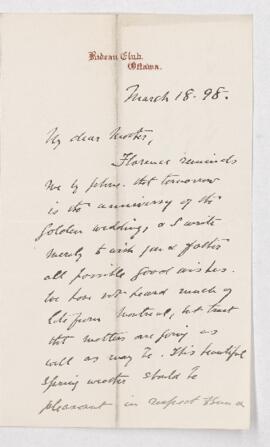 Rideau Club,
Ottawa.
March 18. 98.
My dear Mother,
Florence reminds
me by phone that tomorrow
is the anniversary of the
Golden wedding, & I write
merely to wish you & father
all possible good wishes.
We have not heard much of
late from Montreal, but trust
that matters are going as
well as may be. This beautiful
Spring weather should be
pleasant in respect